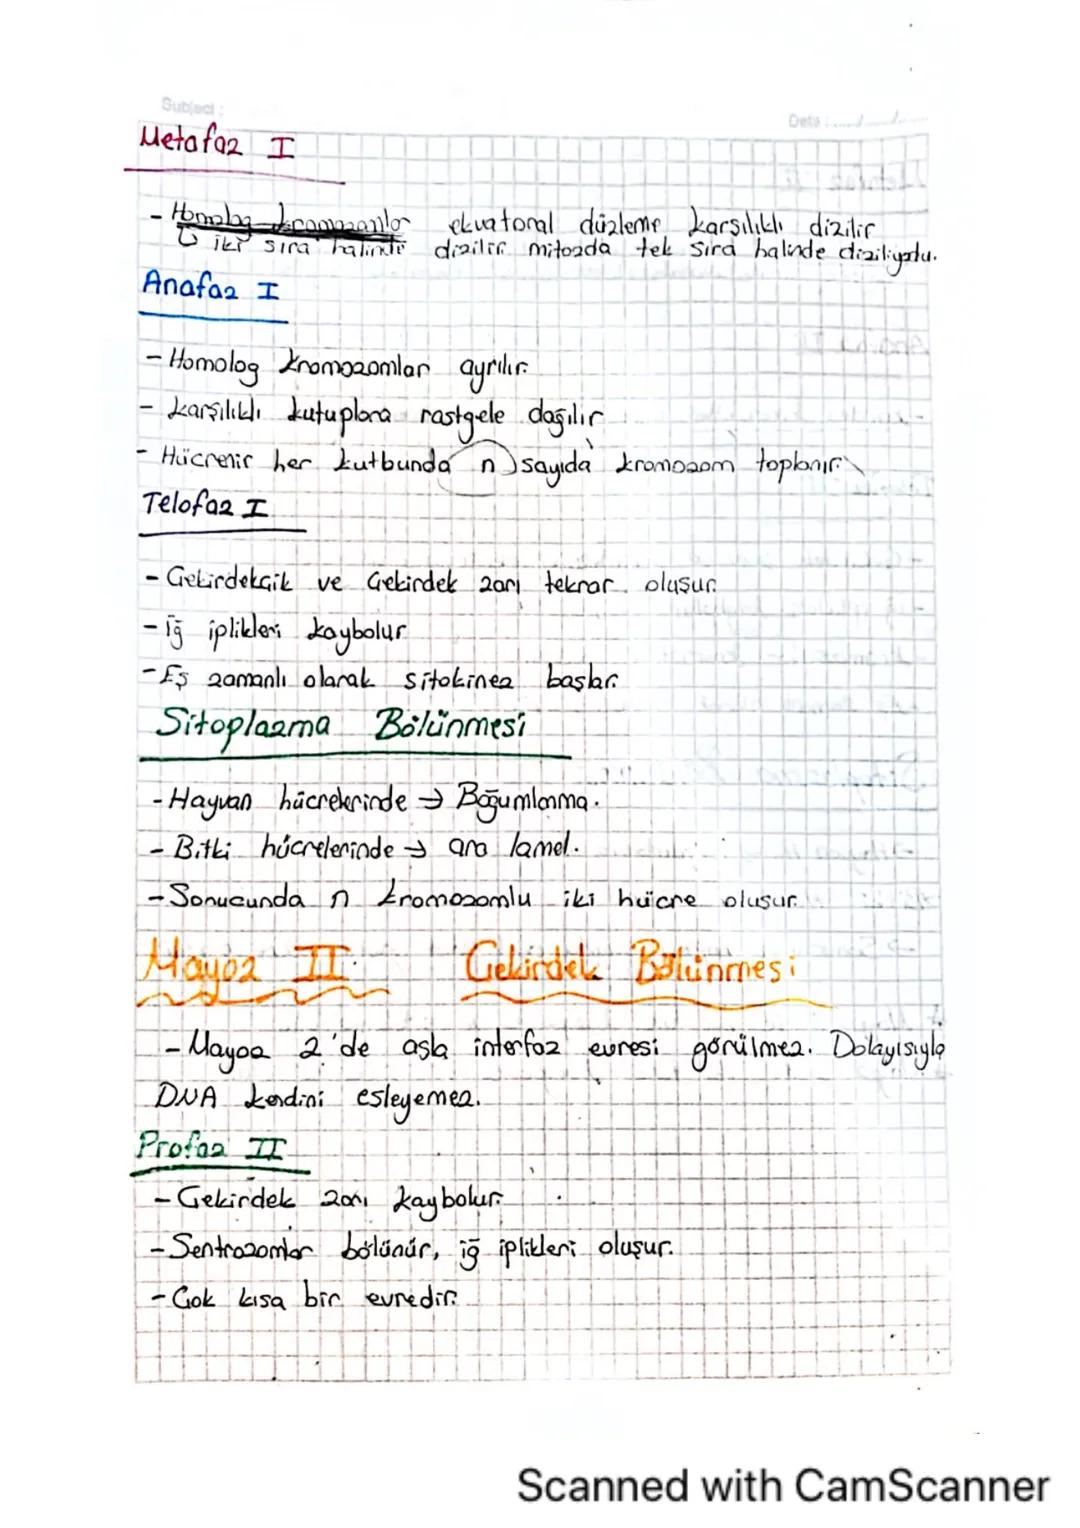 Subject :
Date : ..../..../....
Metafaz I
- Homolog kromozomlar ekvatoral düzleme karşılıklı dizilir
↳ iki sıra halinde dizilir mitozda tek sıra halinde diziliyodu.
Anafaz I
- Homolog kromozomlar ayrılır.
- karşılıklı kutuplara rastgele dağılır
- Hücrenir her kutbunda n sayıda kromozom toplanır
Telofaz I
- Çekirdekçik ve Çekirdek zarı tekrar oluşur.
- iğ iplikleri kaybolur
- Eş zamanlı olarak sitokinez başlar.
Sitoplazma Bölünmesi
- Hayvan hücrelerinde → Boğumlanma.
- Bitki hücrelerinde → ara lamel.
- Sonucunda n kromozomlu iki hücre oluşur
Mayoz II Çekirdek Bölünmesi
- Mayoz 2'de asla interfaz evresi görülmez. Dolayısıyla
DNA kendini eşleyemez.
Profaz II
- Çekirdek zarı kaybolur.
- Sentrozomlar bölünür, iğ iplikleri oluşur.
- Çok kısa bir evredir.
Scanned with CamScanner